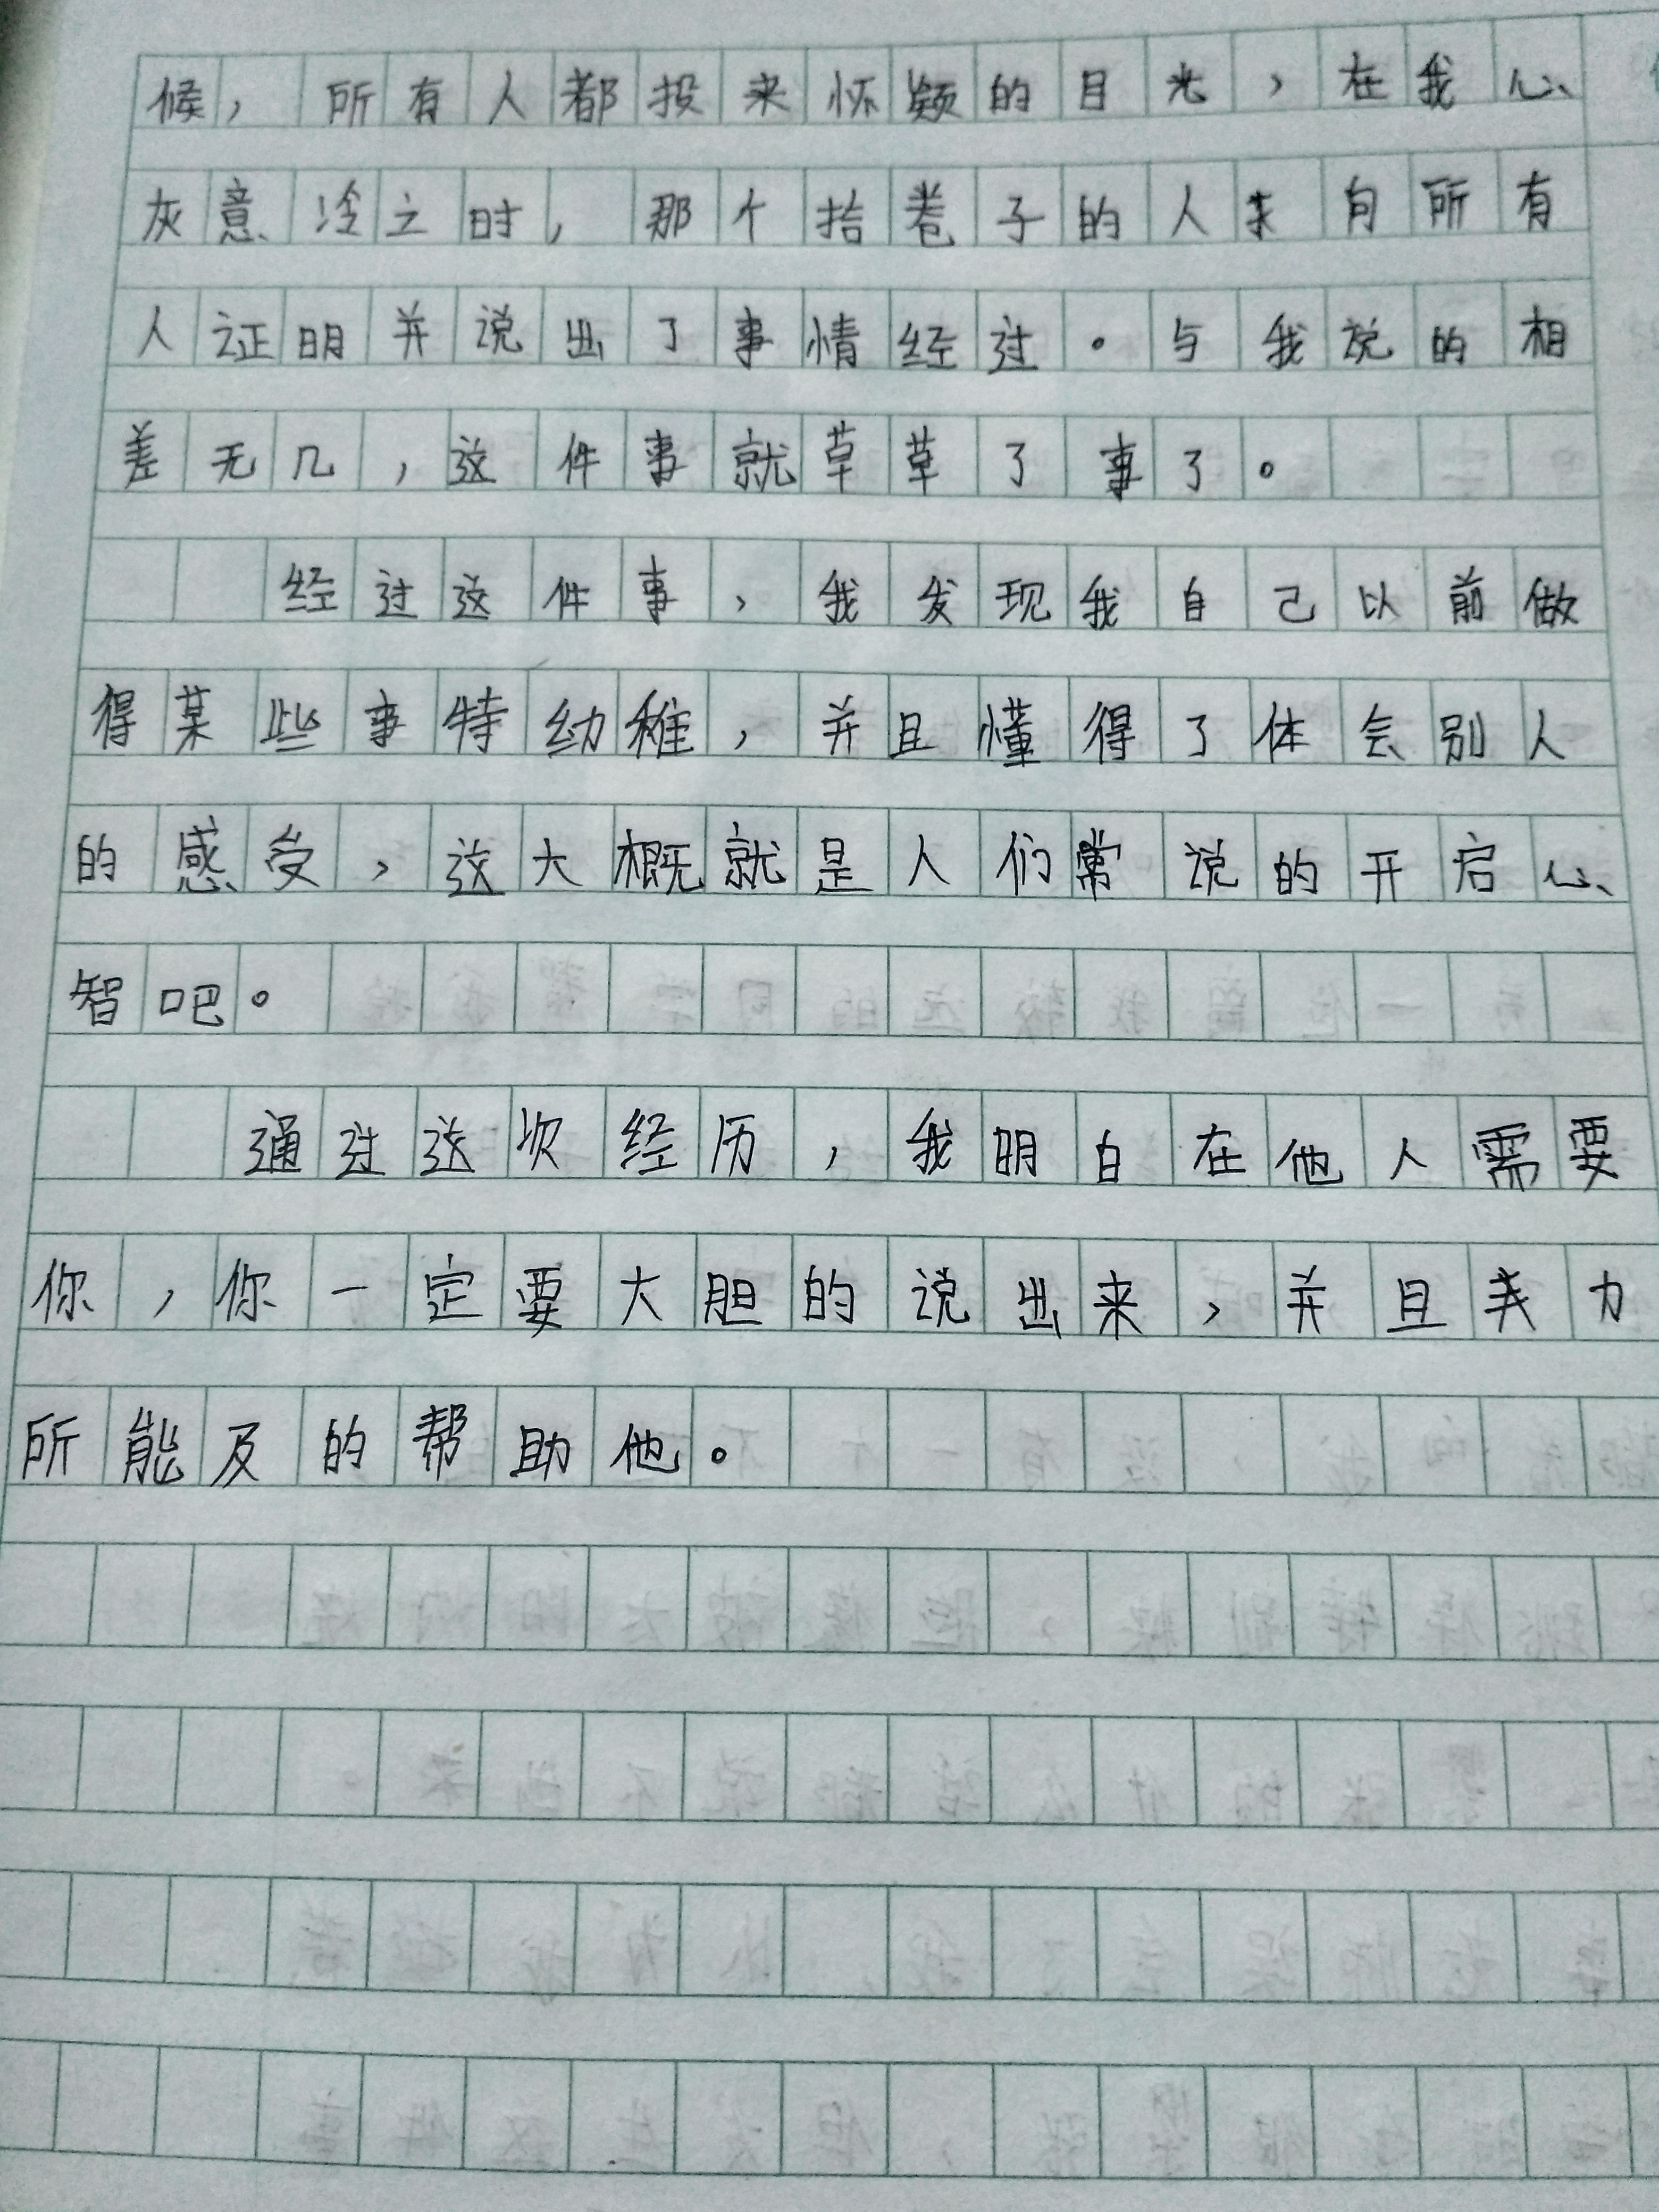 候，所有人都投来怀疑的目光，在我心
灰意冷之时，那个拾卷子的人来向所有
人证明并说出了事情经过。与我说的相
差无几，这件事就草草了事了。
经过这件事，我发现我自己以前做
得某些事特幼稚，并且懂得了体会别人
的感受，这大概就是人们常说的开启心
智吧。
通过这次经历，我明白在他人需要
你，你一定要大胆的说出来，并且力
所能及的帮助他。